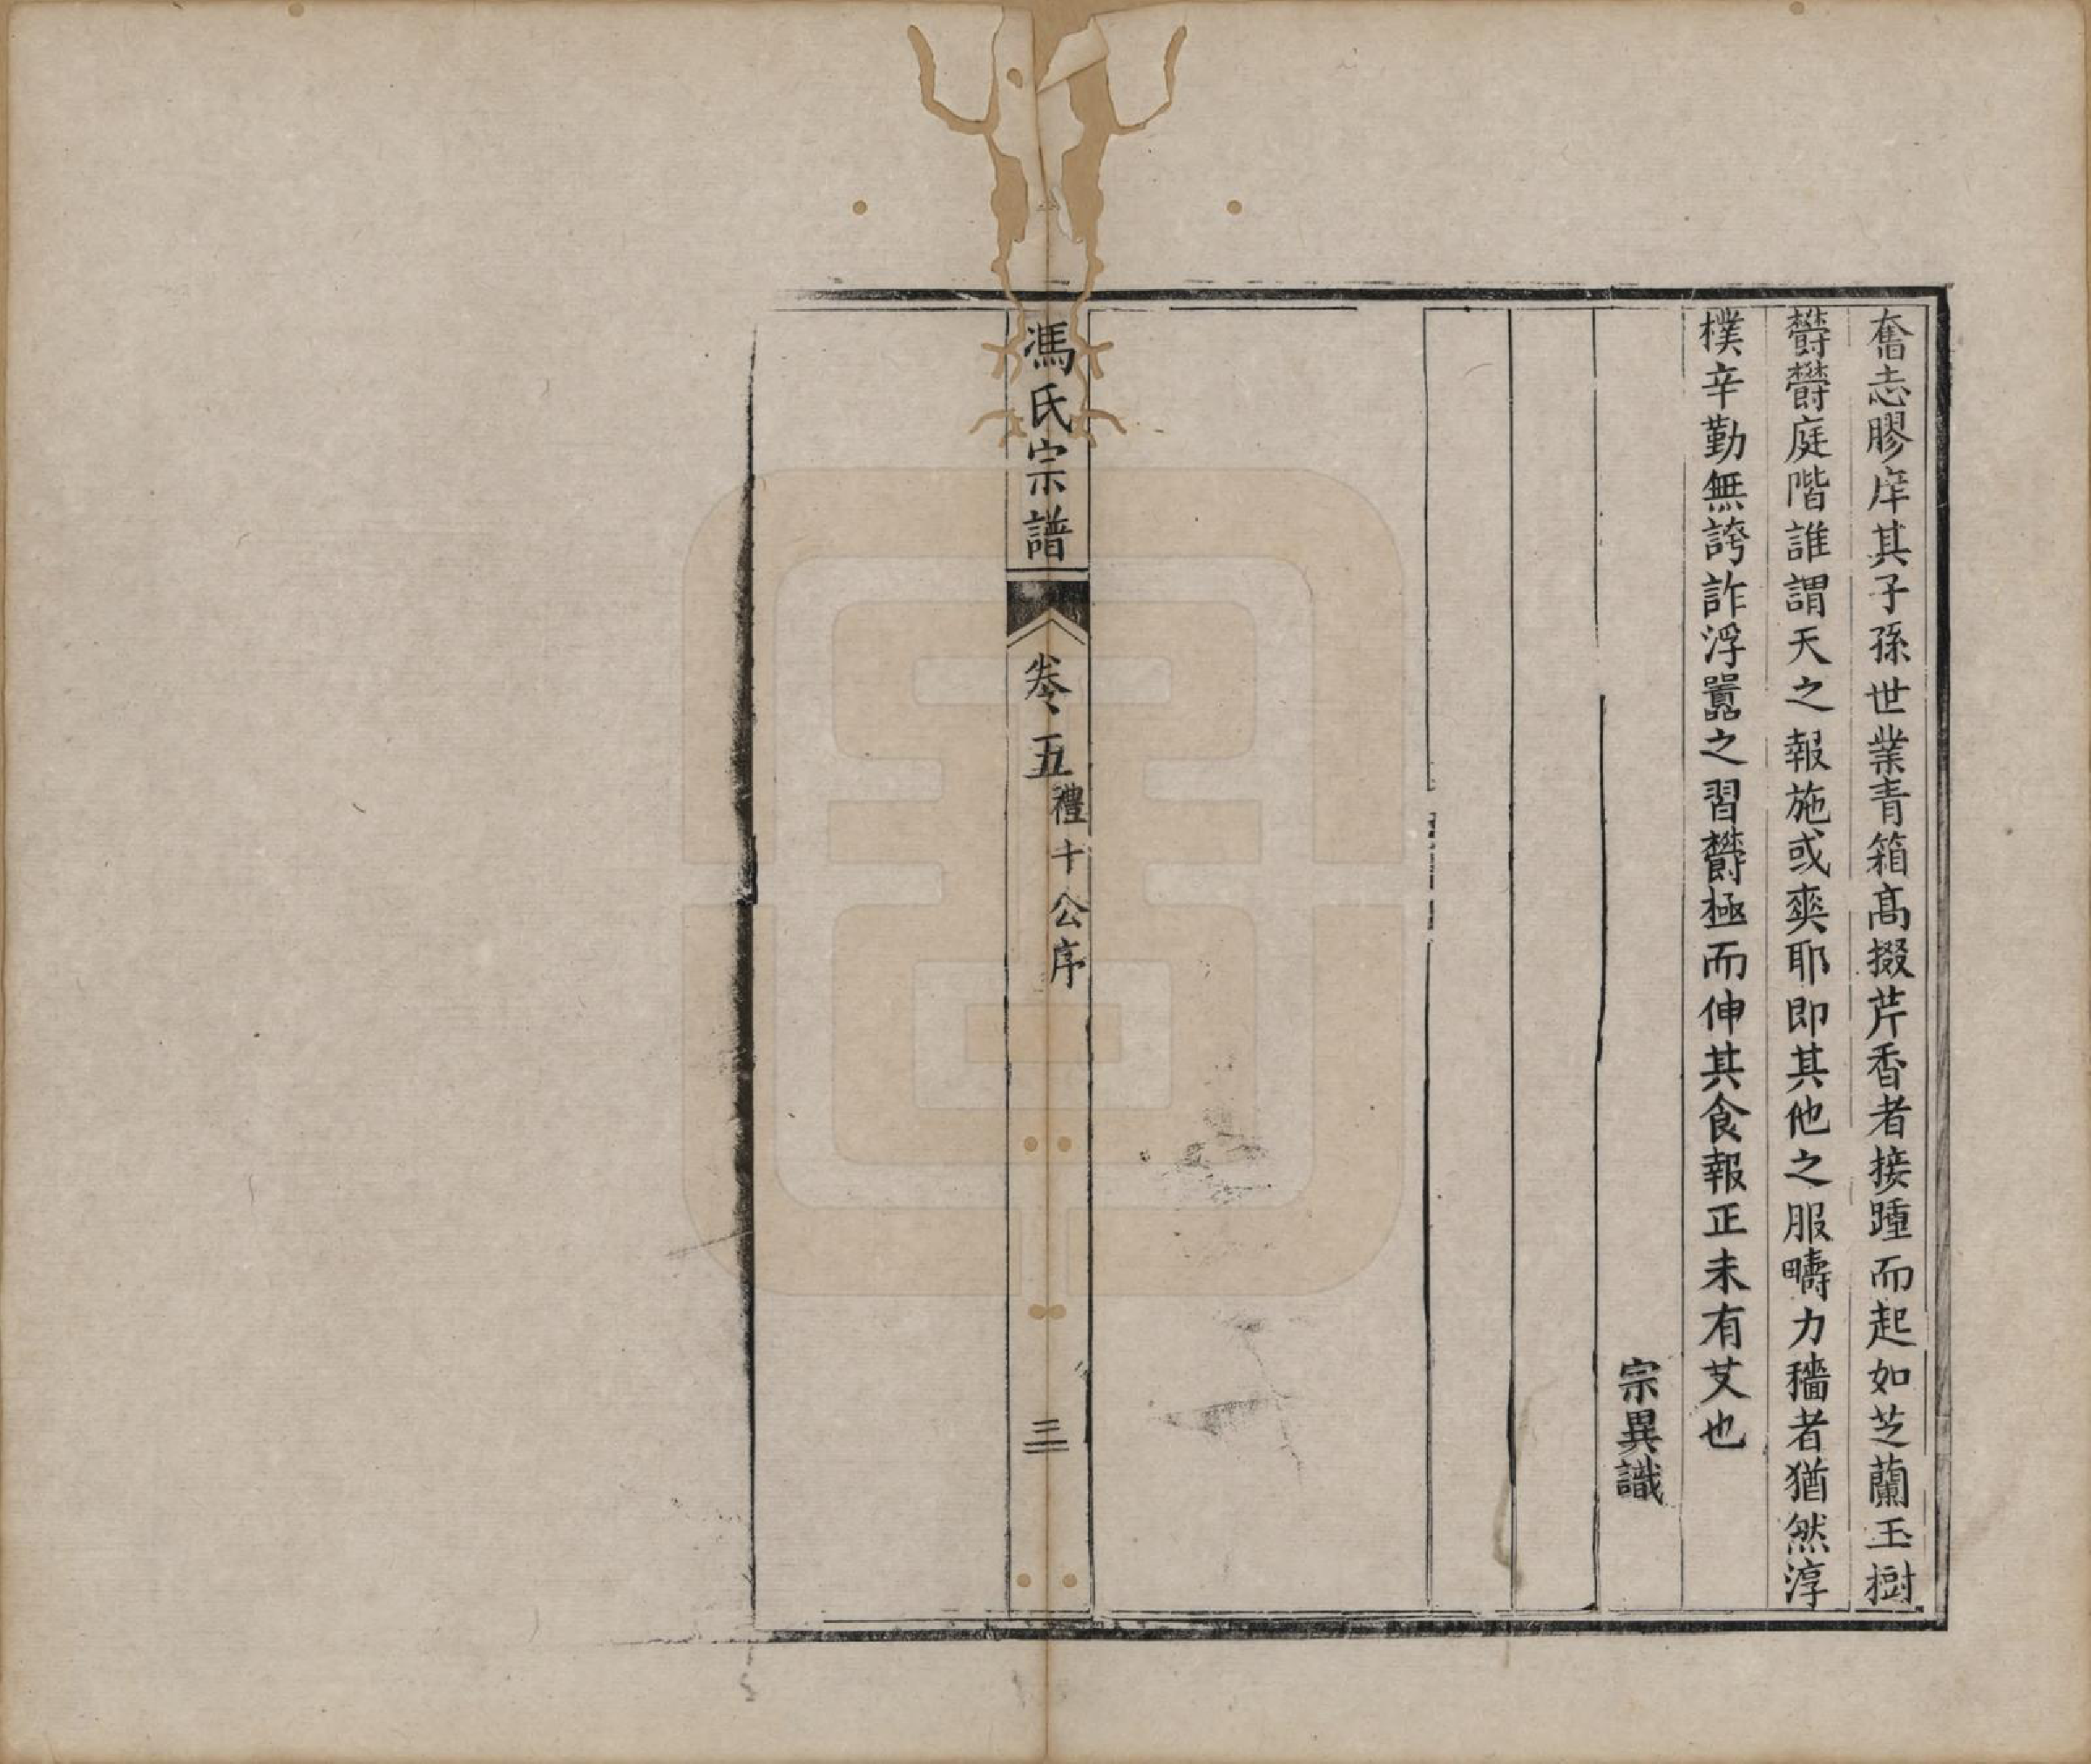 奮志膠庠其子孫世業青箱高掇芹香者接踵而起如芝蘭玉樹
欝欝庭階誰謂天之報施或爽耶即其他之服疇力穡者猶然淳
樸辛勤無誇詐浮囂之習欝極而伸其食報正未有艾也
宗異識
馮氏宗譜
卷五
禮十公序
三